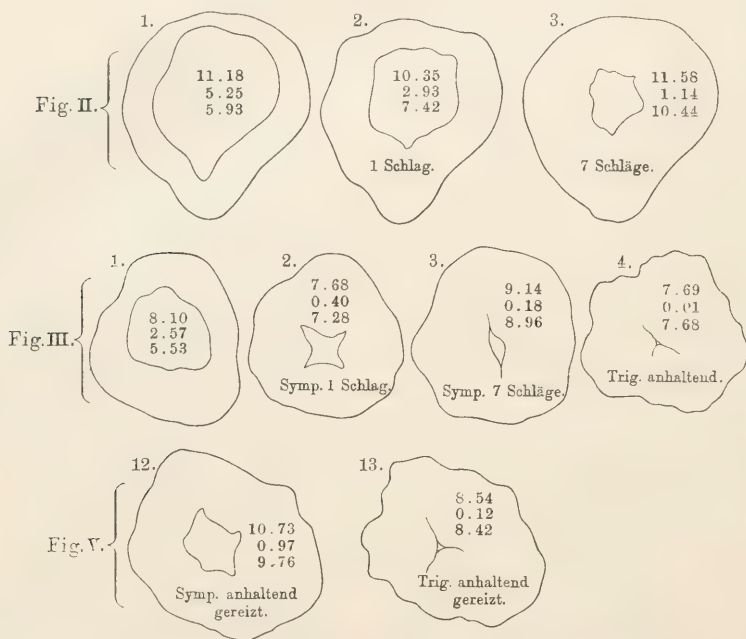 1.
11.18
5.25
5.93
2.
10.35
2.93
7.42
1 Schlag.
3.
11.58
1.14
10.44
7 Schläge.
Fig. II.
1.
8.10
2.57
5.53
2.
7.68
0.40
7.28
Symp. 1 Schlag.
3.
9.14
0.18
8.96
Symp. 7 Schläge.
4.
7.69
0.01
7.68
Trig. anhaltend.
Fig. III.
12.
10.73
0.97
9.76
Symp. anhaltend
gereizt.
13.
8.54
0.12
8.42
Trig. anhaltend
gereizt.
Fig. V.